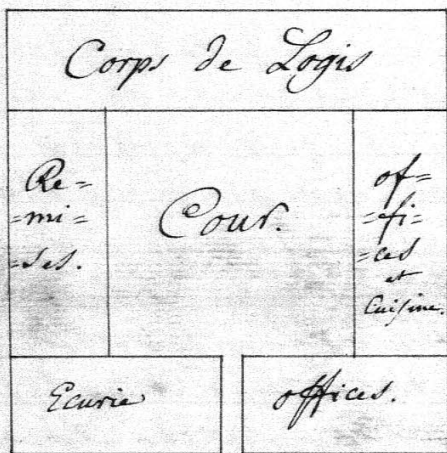 Corps de Logis
Re=
=mi=
=ses.
Cour.
of=
=fi=
=ces
et
Cuisine.
Ecurie
offices.